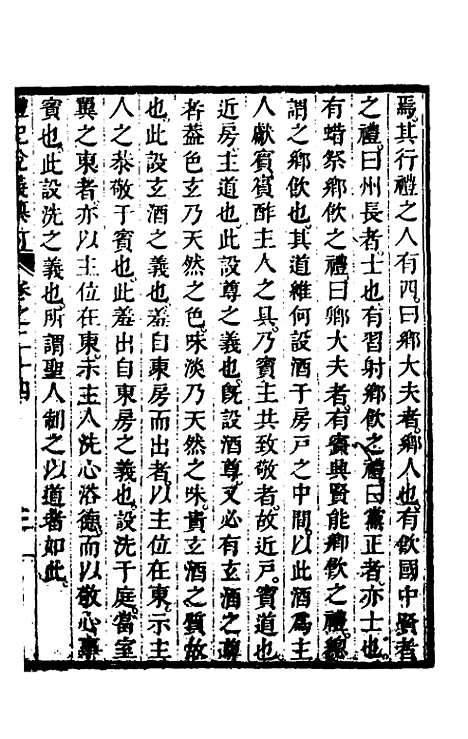 焉其行禮之人有四曰鄉大夫者鄉人也有飲國中賢者
之禮曰州長者士也有習射鄉飲之禮曰黨正者亦士也
有蜡祭鄉飲之禮曰鄉大夫者有賓興賢能鄉飲之禮總
謂之鄉飲也其道維何設酒于房戸之中間以此酒爲主
人獻賓賓酢主人之具乃賓主共致敬者故近戸賓道也
近房主道也此設尊之義也旣設酒尊又必有玄酒之尊
者葢色玄乃天然之色味淡乃天然之味貴玄酒之質故
也此設玄酒之義也羞自東房而出者以主位在東示主
人之恭敬于賓也此羞出自東房之義也設洗于庭當室
翼之東者亦以主位在東示主人洗心浴德而以敬心事
賓也此設洗之義也所謂聖人制之以道者如此
禮記全義纂訂 卷之二十四